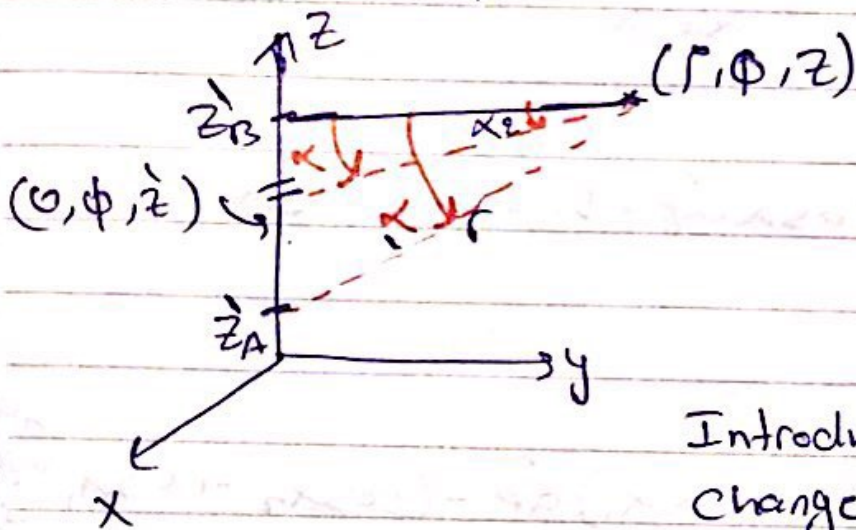 z
(ρ, ϕ, z)
z̀B
α2
α
(0, ϕ, z̀)
α1
r
z̀A
y
Introdu
x
change